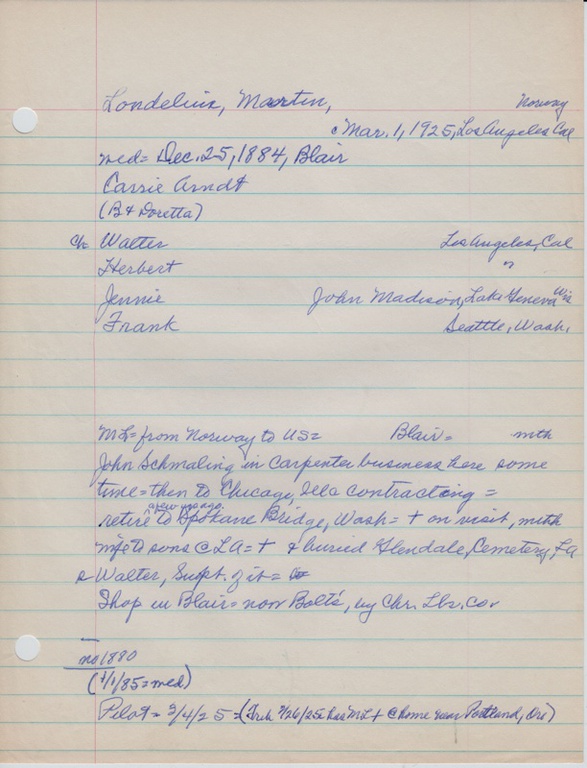 Londelius, Martin, Norway
Mar. 1, 1925, Los Angeles Cal
med = Dec. 25, 1884, Blair
Carrie Arndt
(B + Doretta)
ch Walter Los Angeles, Cal
Herbert "
Jennie John Madison, Lake Geneva Wis
Frank Seattle, Wash.
ML = from Norway to US = Blair = with
John Schmaling in carpenter business here some
time = then to Chicago, Ills contracting =
a few yrs ago
retire to Spokane Bridge, Wash = + on visit, with
wife to sons @ LA = + & buried Glendale, Cemetery, LA
s Walter, Supt. of it =
Shop in Blair = now Bolt's, by Chr. Lbr. Co.
no 1880
(1/1/85 = med)
Pilot = 3/4/25 = ( 3/26/25 has ML + @ home near Portland, Ore)